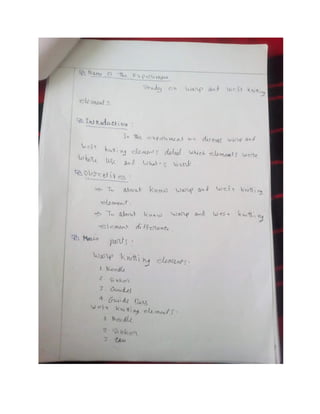 Name of the Experiment
Study on warp and weft knitting
elements.
Introduction :
In this experiment we discuss warp and
weft knitting elements detail which elements were
where use and what's work
Objectives :
→ To about know warp and weft knitting
element.
→ To about know warp and weft knitting
element difference
Main parts :
Warp knitting elements.
1. Needle
2. Sinker
3. Guides
4. Guide Bars
Weft knitting elements:
1. Needle
2. Sinker
3. Cam